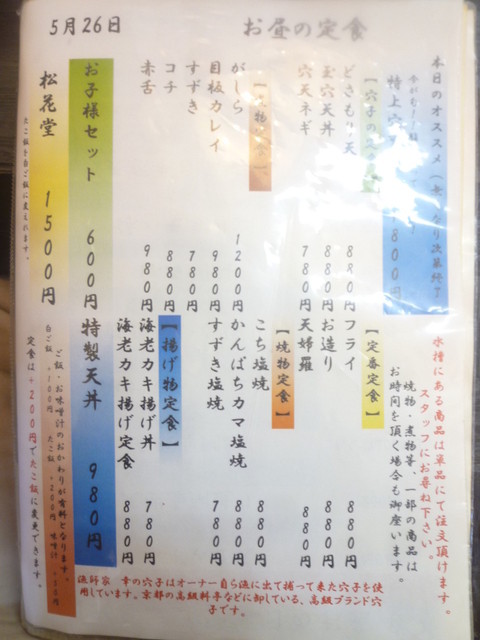 お昼の定食
5月26日
本日のオススメ(無くなり次第終了
特上穴
1800円
【穴子の
どさもり天 880円
玉穴天丼 880円
穴天ネギ 780円
【煮物定食】
がしら 1200円
目板カレイ 980円
すずき 780円
コチ 880円
赤舌 980円
水槽にある商品は単品にて注文頂けます。
スタッフにお尋ね下さい。
焼物・煮物等、一部の商品は
お時間を頂く場合も御座います。
【定番定食】
フライ 880円
お造り 880円
天婦羅 880円
【焼物定食】
こち塩焼 880円
かんぱちカマ塩焼 880円
すずき塩焼 780円
【揚げ物定食】
海老カキ揚げ丼 780円
海老カキ揚げ定食 880円
お子様セット 600円
特製天丼 980円
松花堂 1500円
たこ飯を白ご飯に変えれます。
ご飯・お味噌汁のおかわりが有料となります。
白ご飯 +100円 たこ飯 +200円 味噌汁
定食は+200円でたこ飯に変更できます。
漁師家 幸の穴子はオーナー自ら漁に出て捕って来た穴子を使
用しています。京都の高級料亭などに卸している、高級ブランド穴
子です。